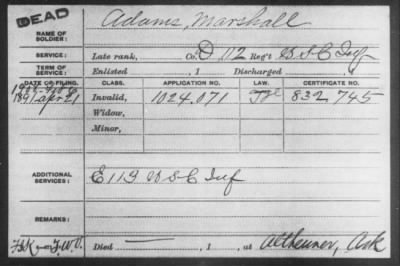 DEAD
NAME OF SOLDIER: Adams, Marshall
SERVICE: Late rank, Co. D 112 Reg't U S C Inf
TERM OF SERVICE: Enlisted , 1 Discharged , 1
DATE OF FILING. CLASS. APPLICATION NO. LAW. CERTIFICATE NO.
1891 Apr 21 Invalid, 1024.071 832.745
Widow,
Minor,
ADDITIONAL SERVICES: E 113 U S C Inf
REMARKS:
Died , 1 , at Altheimer, Ark